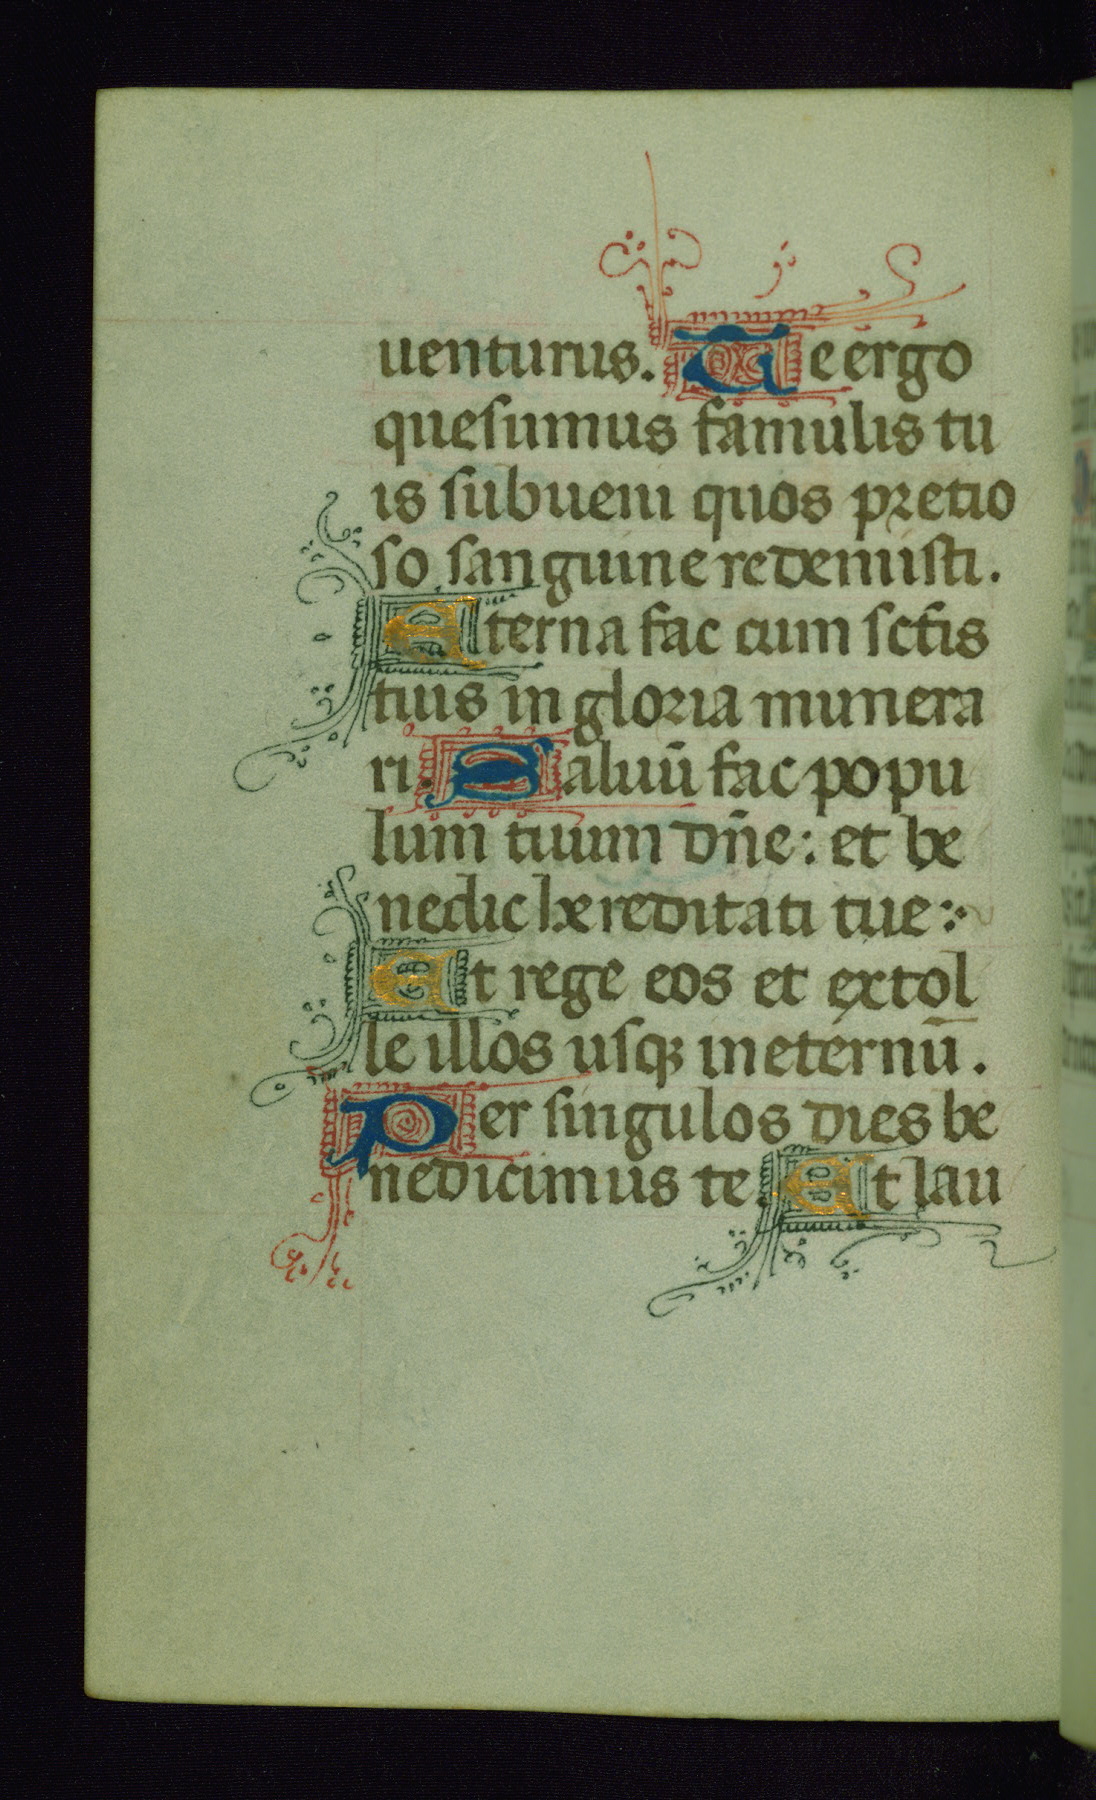 uenturus. Te ergo
quesumus famulis tu
is subueni quos pretio
so sanguine redemisti.
Eterna fac cum sctīs
tuis in gloria munera
ri. Saluū fac popu
lum tuum dn̄e: et be
nedic hereditati tue:
Et rege eos et extol
le illos usqꝫ in eternū.
Per singulos dies be
nedicimus te. Et lau